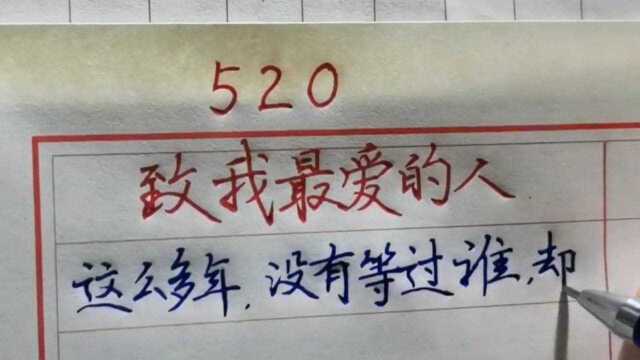 520
致我最爱的人
这么多年,没有等过谁,却